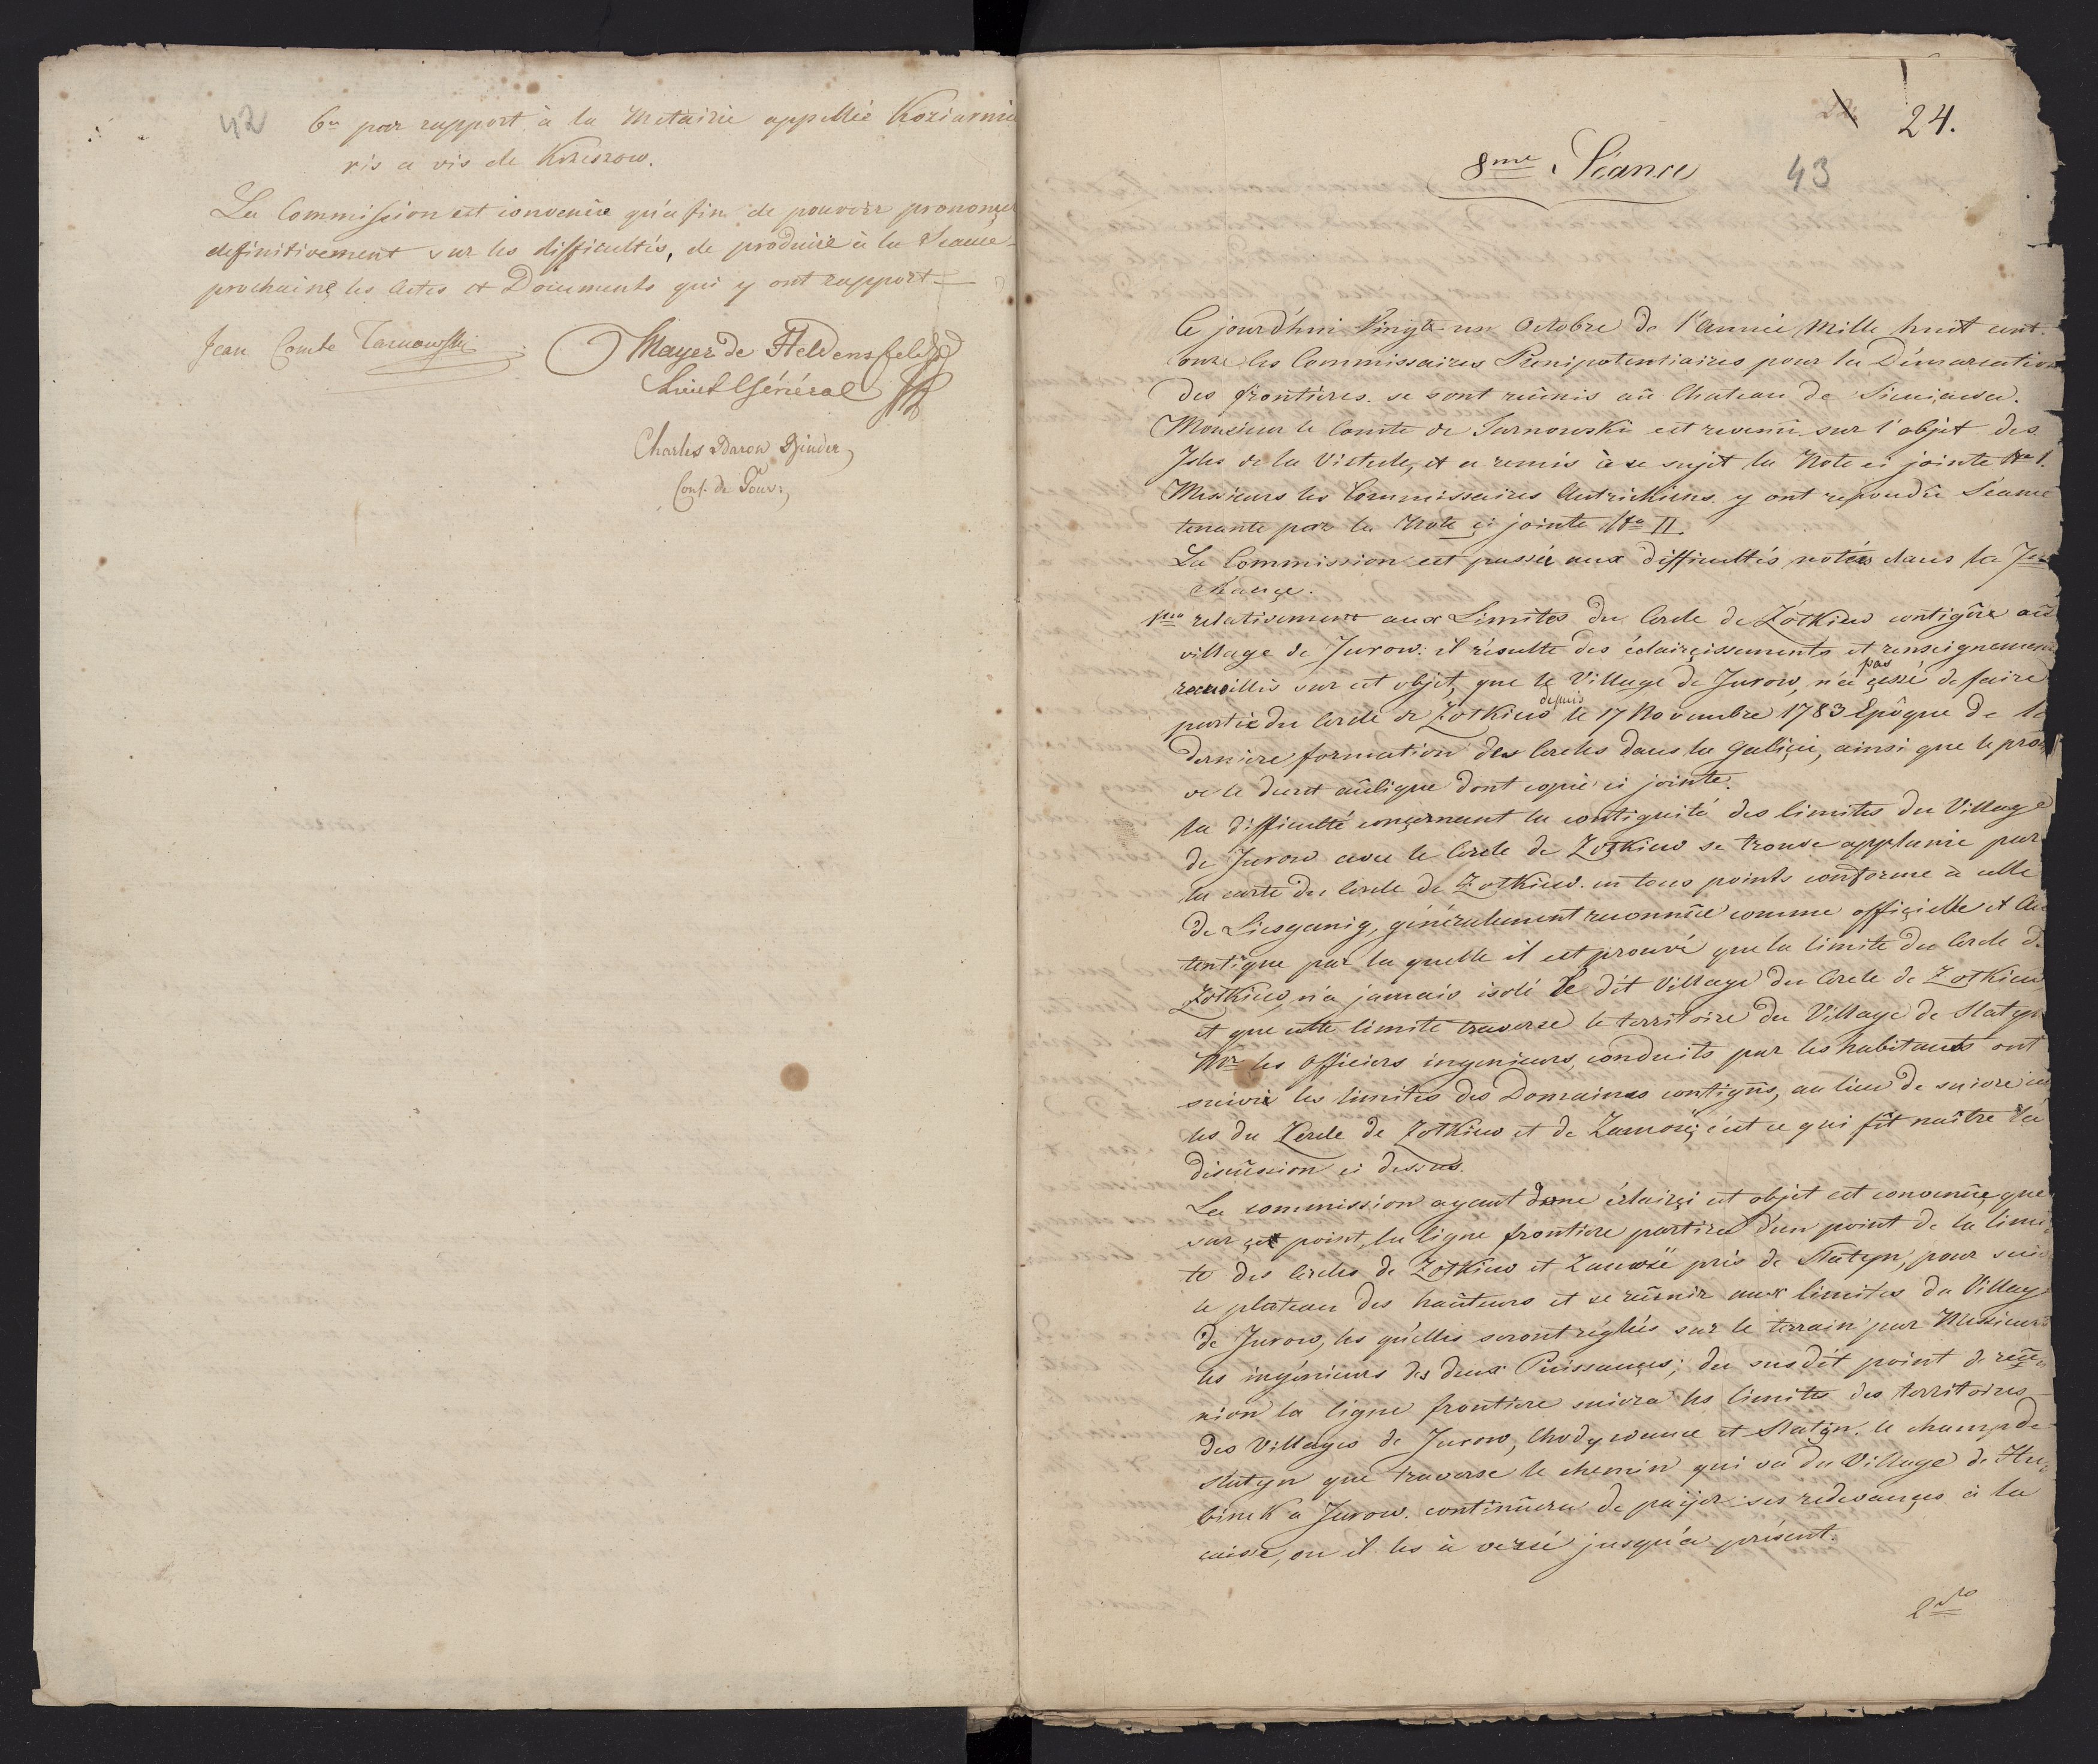 42
6to par rapport à la Metairie appellée Koziarnia
vis a vis de Krzeszow.
La Commission est convenüe qu'afin de pouvoir prononçer
definitivement sur les difficultés, de produire à la Seance
prochaine les Actes et Documents qui y ont rapport
Jean Comte Tarnowski
Mayer de Heldensfeld
Lieut Général
Charles Baron Binder
Cons. de Gouv.
24.
43
8me Séance
Ce jourd'hui Vingt un Octobre de l'année Mille huit cent
onze les Commissaires Plenipotentiaires pour la Démarcation
des frontières se sont reûnis aû Chateau de Sieniawa.
Monsieur le Comte de Tarnowski est revenû sur l'objet des
Isles de la Vistule, et a remis à ce sujet la Note ci jointe No I.
Messieurs les Commissaires Autrichiens y ont repondû Séance
tenante par la Note ci jointe No II.
La Commission est passée aux difficultés notées dans la
Séance.
1mo relativement aux Limites du Cercle de Zotkiew contigûes aû
village de Jurow: il résulte des éclairçissements et renseignemens
recueillis sur cet objet, que le Village de Jurow, n'a pas cessé de faire
partie du Cercle de Zotkiew depuis le 17 Novembre 1783 Epôque de la
derniere formation des Cercles dans la Galiçie, ainsi que le prou
ve le decret aûlique dont copie ci jointe.
La difficulté conçernant la contiguité des limites du Village
de Jurow avec le Cercle de Zotkiew se trouve applanie par
la carte du Cercle de Zotkiew en tous points conforme à celle
de Liesganig, généralement reconnûe comme offiçielle et Au
tentique par la quelle il est prouvé que la limite du Cercle de
Zotkiew, n'a jamais isolé le dit Village du Cercle de Zotkiew
et que cette limite traverse le territoire du Village de Statyn
Mrs les Officiers ingenieurs, conduits par les habitants ont
suivie les limites des Domaines contigus, au lieu de suivre cel
les du Cercle de Zotkiew et de Zamosç; c'est ce qui fit naître la
discûssion ci dessus.
La commission ayant donc éclairçi cet objet est convenûe que
sur çet point, la ligne frontiere partira d'un point de la limi
te des Cercles de Zotkiew et Zamosé près de Statyn, pour suivre
le plateau des haûteurs et se reûnir aux limites du Village
de Jurow, les quelles seront réglées sur le terrain par Messieurs
les ingénieurs des deux Puissançes; du susdit point de reû
nion la ligne frontiere suivra les limites des territoires
des Villages de Jurow, Chodywance et Statyn. le champ de
Statyn que traverse le chemin qui va du Village de Hre
binek a Jurow. continûera de païjer ses redevançes à la
caisse, ou il les à versé jusqu'a présent.
2do